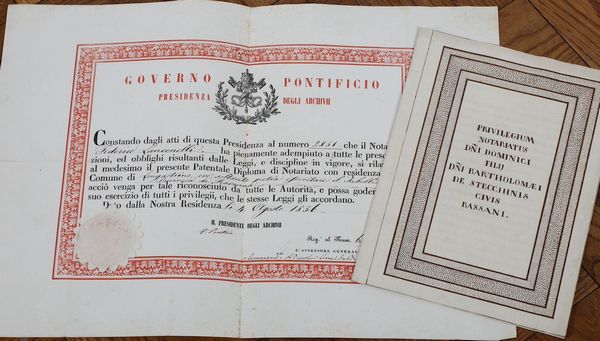 GOVERNO PONTIFICIO
PRESIDENZA DEGLI ARCHIVII
Constando dagli atti di questa Presidenza al numero 2851 che il Nota
Federico ha pienamente adempiuto a tutte le prese
zioni, ed obblighi risultanti dalle Leggi, e discipline in vigore, si rila
al medesimo il presente Patentale Diploma di Notariato con residenza
Comune di
acciò venga per tale riconosciuto da tutte le Autorità, e possa goder
suo esercizio di tutti i privilegii, che le stesse Leggi gli accordano.
Dato dalla Nostra Residenza li 4 Agosto 1856
IL PRESIDENTE DEGLI ARCHIVII
Reg.
L'ASSESSORE GENERAL
PRIVILEGIUM
NOTARIATUS
DÑI DOMINICI
FILII
DÑI BARTHOLOMÆI
DE STECCHINIS
CIVIS
BASSANI.